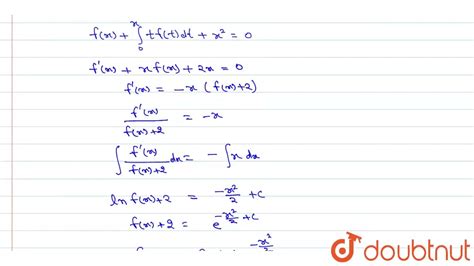 f(x) + ∫₀ˣ t f(t) dt + x² = 0
f'(x) + x f(x) + 2x = 0
f'(x) = -x (f(x)+2)
f'(x) / f(x)+2 = -x
∫ f'(x) / f(x)+2 dx = - ∫ x dx
ln f(x)+2 = -x²/2 + c
f(x)+2 = e^(-x²/2 + c)
-x²/2
doubtnut